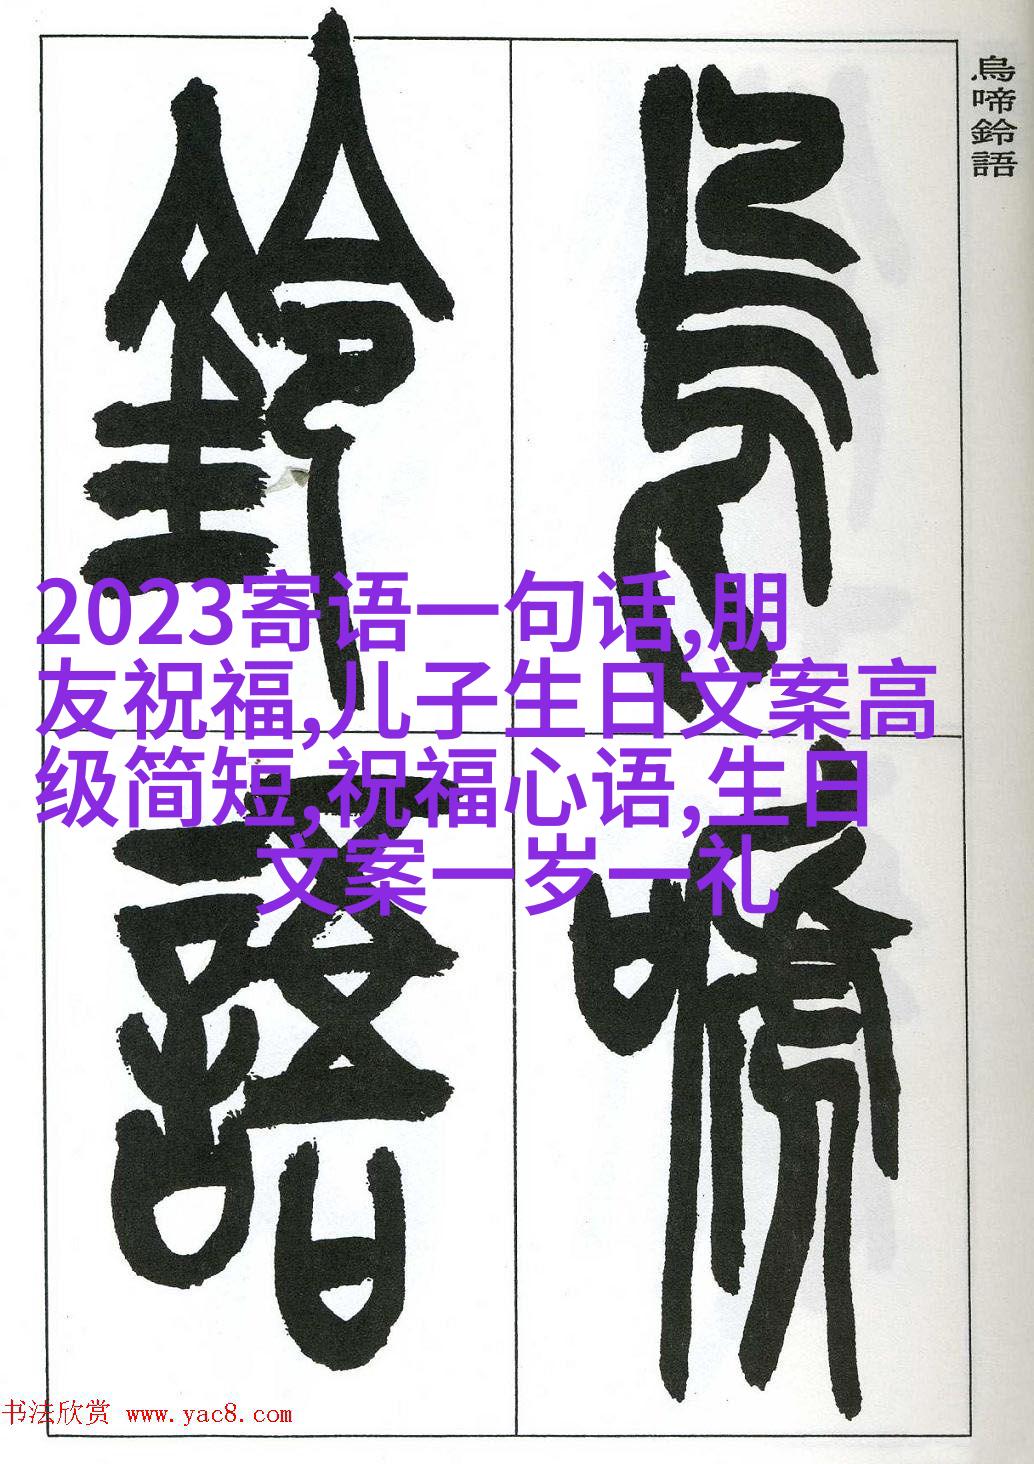 鳥啼鈴語
鳥啼
鈴語
2023寄语一句话,朋
友祝福,儿子生日文案高
级简短,祝福心语,生日
文案一岁一礼
书法欣赏 www.yac8.com